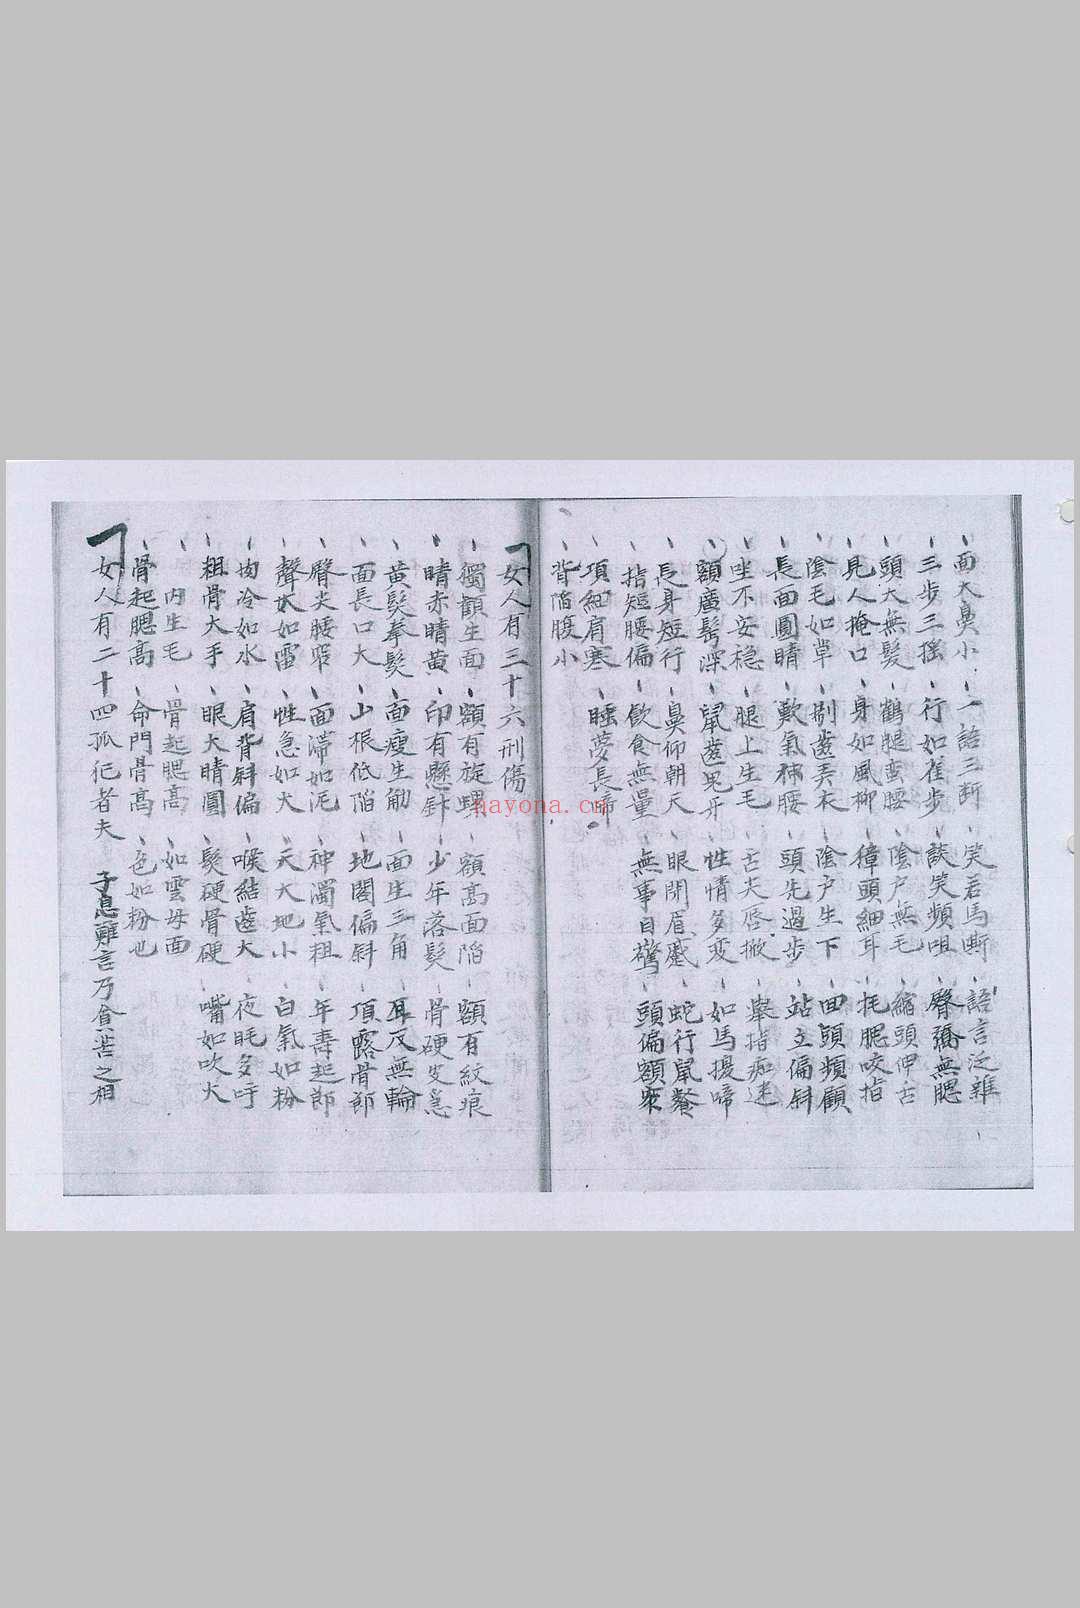 面大鼻小 一語三断 笑若馬嘶 語言泛雜
三步三摇 行如雀步 談笑頻咀 臀翘無腮
頭大無髮 鶴腿蛮腰 陰户無毛 縮頭伸舌
見人掩口 身如風柳 獐頭細耳 托腮咬指
陰毛如草 剔齒弄衣 陰户生下 回頭頻顧
長面圓睛 歎氣伸腰 頭先過步 站立偏斜
坐不安穏 腿上生毛 舌尖唇掀 舉指痴迷
額廣鬂深 鼠齒鬼牙 性情多変 如馬擾啼
長身短行 鼻仰朝天 眼閉眉蹙 蛇行鼠餐
指短腰偏 飲食無量 無事自驚 頭偏額窄
項細肩寒 睡夢長啼
背陷腹小
女人有三十六刑傷
獨顴生面 額有旋螺 額高面陷 額有紋痕
睛赤睛黄 印有懸針 少年落髮 骨硬皮急
黄髮拳髮 面瘦生觔 面生三角 耳反無輪
面長口大 山根低陷 地閣偏斜 項露骨節
臀尖腰窄 面滞如泥 神濁氣粗 年壽起節
聲大如雷 性急如火 天大地小 白氣如粉
肉冷如水 肩背斜偏 喉結齒大 夜眠多呼
粗骨大手 眼大睛圓 髮硬骨硬 嘴如吹火
内生毛 骨起腮高 如雲母面
骨起腮高 命門骨高 色如粉也
女人有二十四孤犯者夫 子息難言乃貪苦之相
nayona.cn